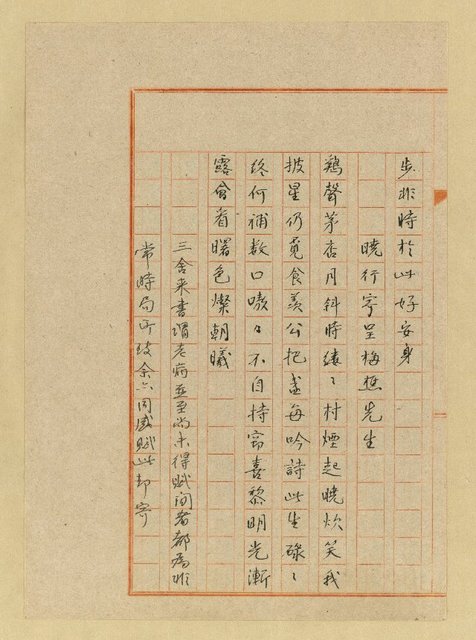 步非時於此好安身
曉行寄呈梅樵先生
鷄聲茅店月斜時縷〻村煙起曉炊笑我
披星仍覓食羨公把盞每吟詩此生碌〻
終何補數口嗷〻不自持窃喜黎明光漸
露會看曙色燦朝曦
三舍来書謂老病並至尚未得賦閒者都為非
常時局所致余亦同感賦此却寄